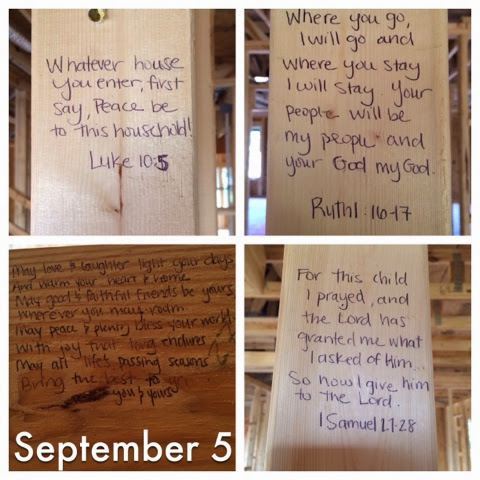 Whatever house
you enter, first
say, Peace be
to this household!
Luke 10:5
Where you go,
I will go and
where you stay
I will stay. Your
people will be
my people and
your God my God.
Ruth 1:16-17
May love & laughter light your days
And warm your heart & home
May good & faithful friends be yours
Wherever you may roam
May peace & plenty bless your world
With joy that long endures
May all life's passing seasons
Bring the best to
you & yours
For this child
I prayed, and
the Lord has
granted me what
I asked of Him...
So now I give him
to the Lord.
1 Samuel 1:1-28
September 5